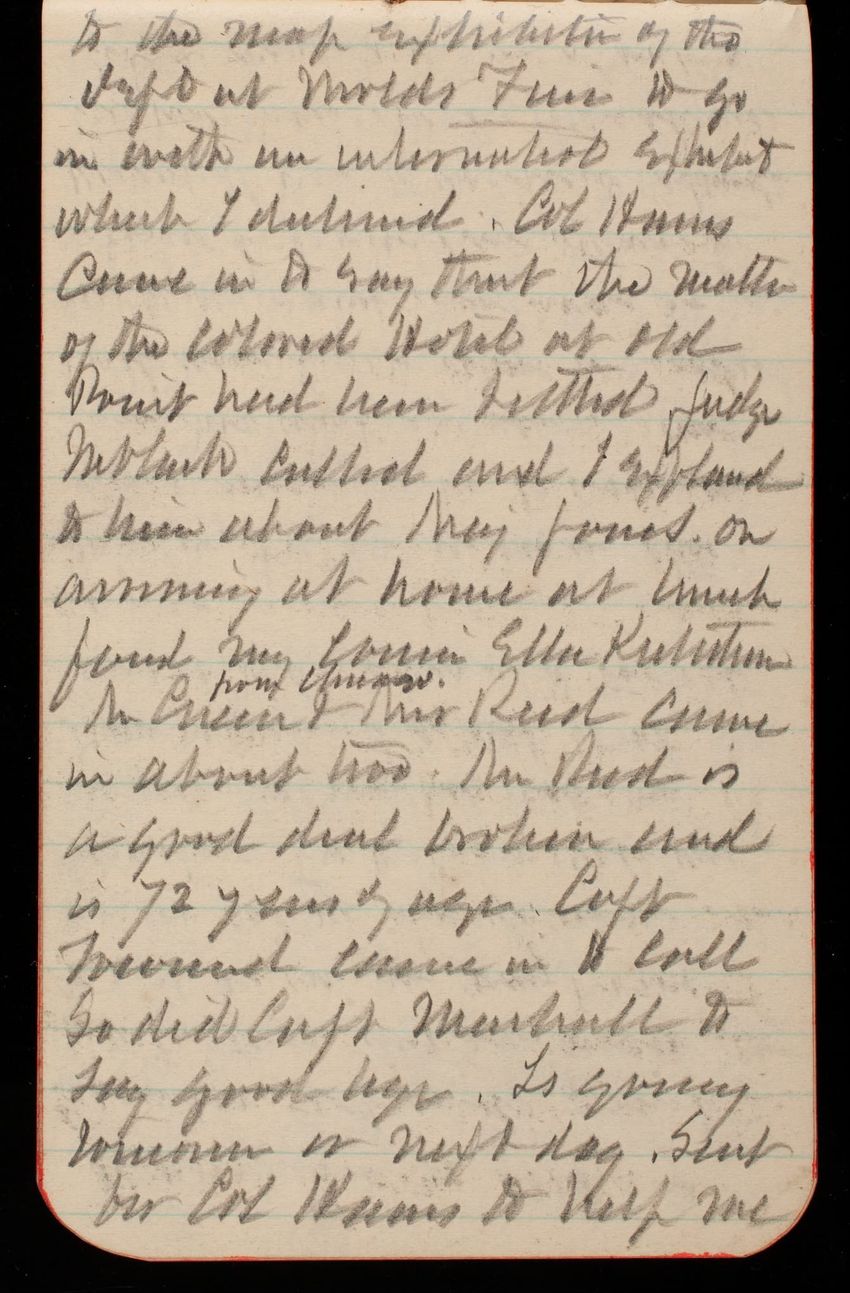 to the map exhibition of the
Dept at Worlds Fair to go
in with an international exhibit
which I declined. Col Hams
Came in to say that the matter
of the Colored Hotel at old
Point had been settled Judge
called and I explaind
to him about Maj Jones. on
arriving at home at lunch
found my Cousin Ella
from Chicago.
Mr & Mrs Reed came
in about two. Mr Reed is
a good deal broken and
is 72 years of age. Capt
came in to call
So did Capt Marshall to
say good bye. Is going
tomorrow or next day. Sent
for Col Hams to help me